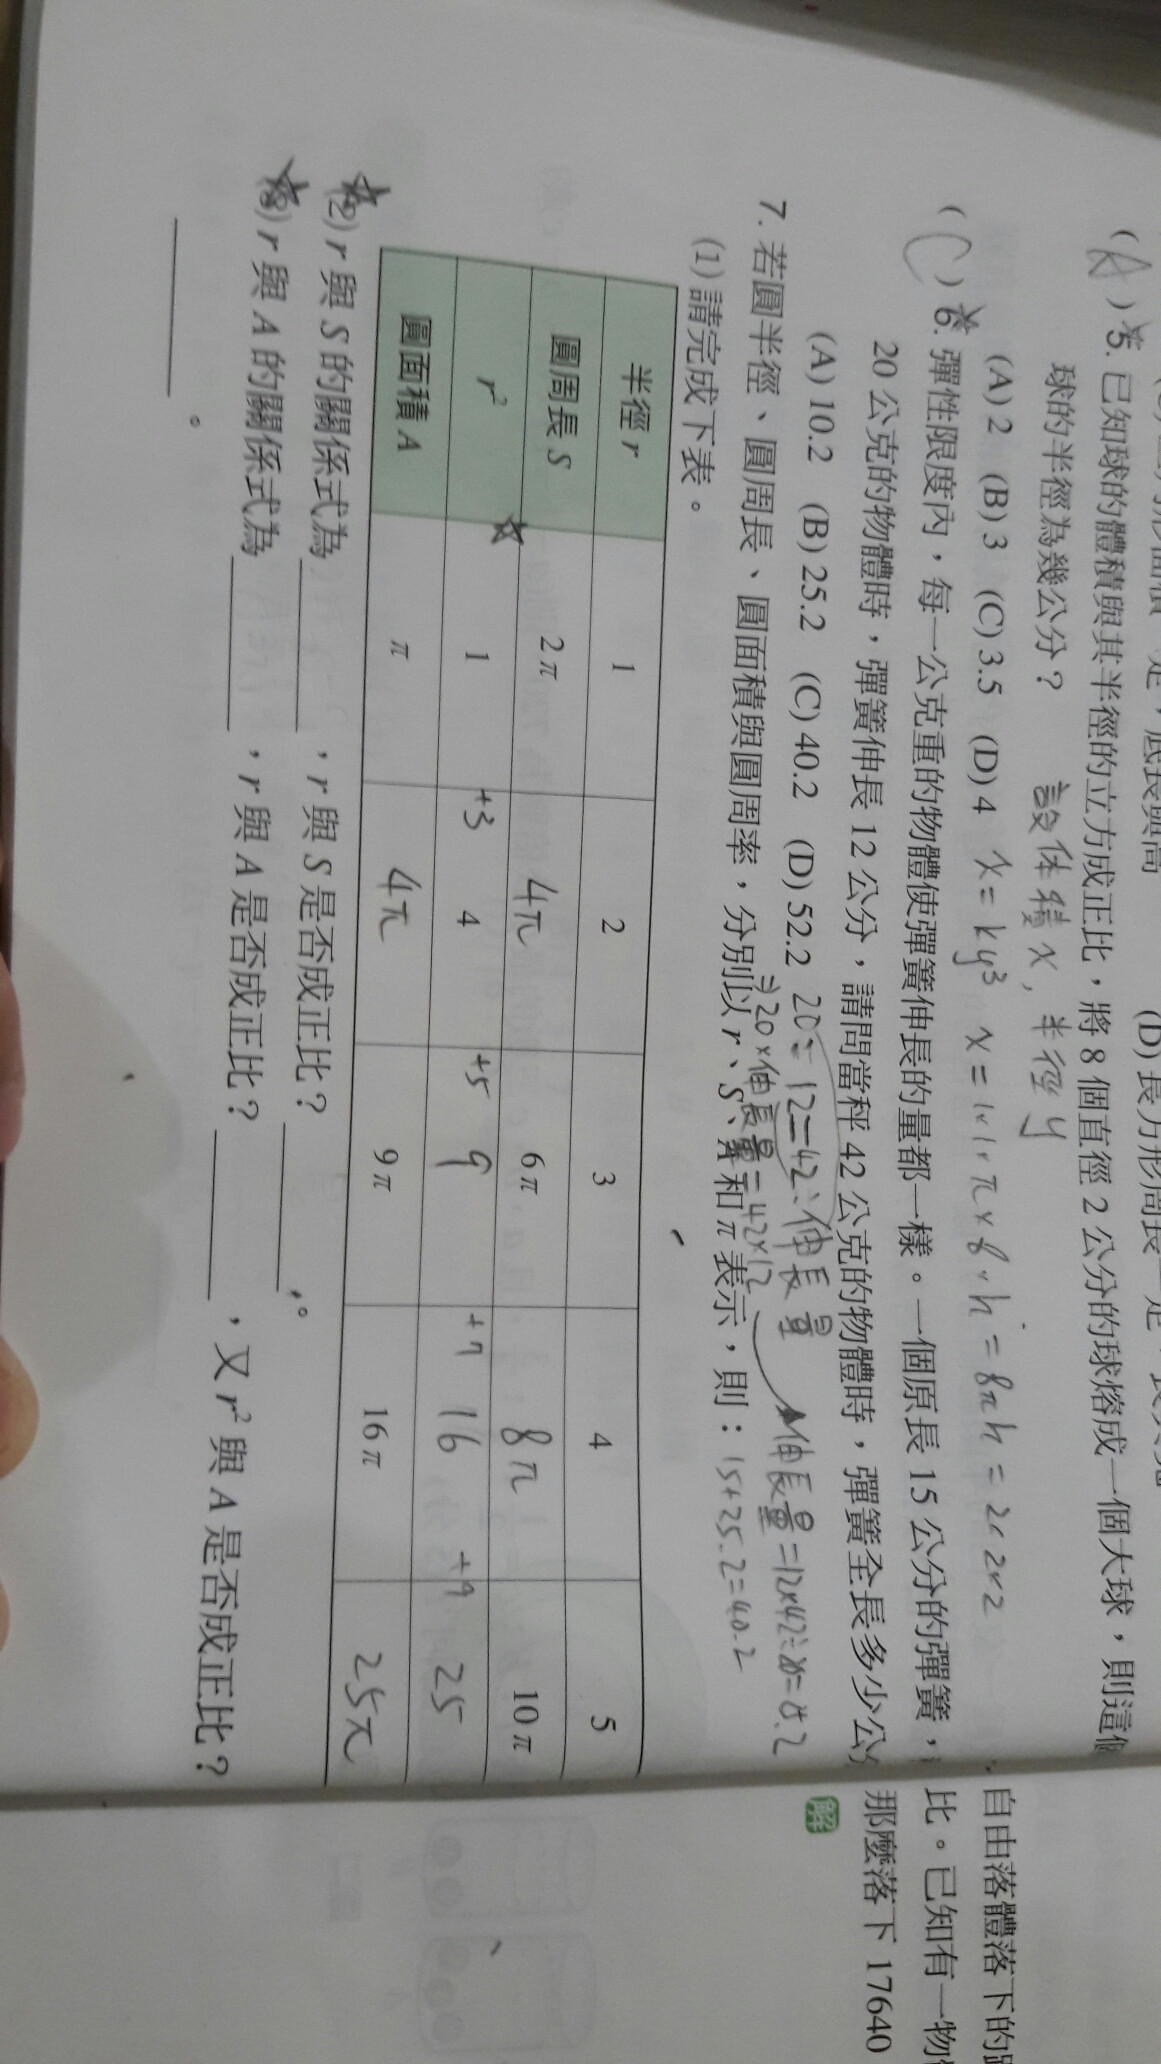 (D) 長方形周長一定，長與寬
(A) 5. 已知球的體積與其半徑的立方成正比，將 8 個直徑 2 公分的球熔成一個大球，則這個
球的半徑為幾公分？ 設体積 x, 半徑 y
(A) 2 (B) 3 (C) 3.5 (D) 4 x=ky³ x=1×1×π×8×h=8πh=2×2×2
(C) 6. 彈性限度內，每一公克重的物體使彈簧伸長的量都一樣。一個原長 15 公分的彈簧，
20 公克的物體時，彈簧伸長 12 公分，請問當秤 42 公克的物體時，彈簧全長多少公分
(A) 10.2 (B) 25.2 (C) 40.2 (D) 52.2 20:12=42:伸長量
⇒20×伸長量=42×12 伸長量=12×42÷20=25.2
15+25.2=40.2
7. 若圓半徑、圓周長、圓面積與圓周率，分別以 r、S、A 和 π 表示，則：
(1) 請完成下表。
半徑 r 1 2 3 4 5
圓周長 S 2π 4π 6π 8π 10π
r² 1 +3 4 +5 9 +7 16 +9 25
圓面積 A π 4π 9π 16π 25π
(2) r 與 S 的關係式為 ，r 與 S 是否成正比？ 。
(3) r 與 A 的關係式為 ，r 與 A 是否成正比？ ，又 r² 與 A 是否成正比？
。
自由落體落下的
比。已知有一物
那麼落下 17640
解